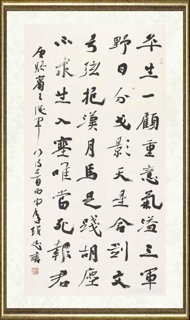 平生一顧重意氣溢三軍
野日分戈影天星合劍文
弓弦抱漢月馬足踐胡塵
不求生入塞唯當死報君
唐駱賓王從軍行